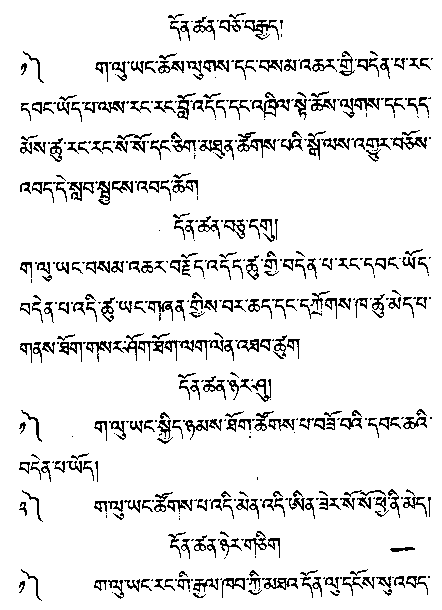 དོན་ཚན་བཅོ་བརྒྱད།
༡༽ ག་ལུ་ཡང་ཆོས་ལུགས་དང་བསམ་འཆར་གྱི་བདེན་པ་རང་
དབང་ཡོད་པ་ལས་རང་རང་བློ་འདོད་དང་འཁྲིལ་སྟེ་ཆོས་ལུགས་དང་དད་
མོས་ཚུ་རང་རང་སོ་སོ་དང་ཅིག་མཐུན་ཚོགས་པའི་སྒོ་ལས་འགྱུར་བཅོས་
འབད་དེ་སླབ་སྦྱངས་འབད་ཆོག
དོན་ཚན་བཅུ་དགུ།
ག་ལུ་ཡང་བསམ་འཆར་བརྗོད་འདོད་ཚུ་གྱི་བདེན་པ་རང་དབང་ཡོད་
བདེན་པ་འདི་ཚུ་ཡང་གཞན་གྱིས་བར་ཆད་དང་དཀྲོགས་ཁ་ཚུ་མེད་པ་
གནས་ཐོག་གསར་ཤོག་ཐོག་ལག་ལེན་འཐབ་ཚུག
དོན་ཚན་ཉེར་ཤུ།
༡༽ ག་ལུ་ཡང་སྐྱིད་ཉམས་ཐོག་ཚོགས་པ་བཟོ་བའི་དབང་ཆའི་
བདེན་པ་ཡོད།
༢༽ ག་ལུ་ཡང་ཚོགས་པ་འདི་མེན་འདི་ཨིན་ཟེར་སོ་སོ་ཕྱེ་ནི་མེད།
དོན་ཚན་ཉེར་གཅིག
༡༽ ག་ལུ་ཡང་རང་གི་རྒྱལ་ཁབ་ཀྱི་མཐའ་དོན་ལུ་དངོས་སུ་འབད་